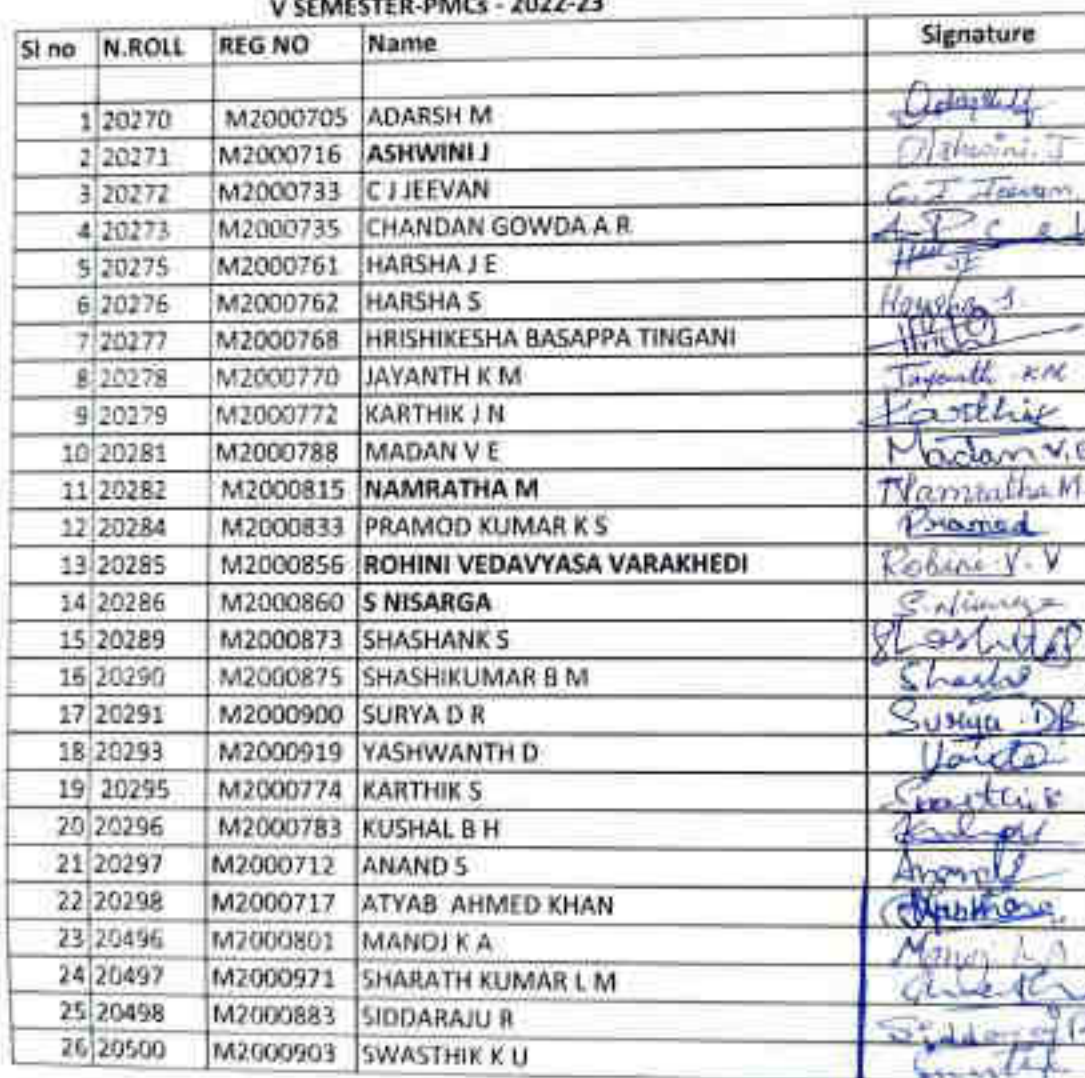 V SEMESTER-PMCs - 2022-23
Sl no N.ROLL REG NO Name Signature
1 20270 M2000705 ADARSH M
2 20271 M2000716 ASHWINI J Ashwini. J
3 20272 M2000733 C J JEEVAN C. J Jeevan
4 20273 M2000735 CHANDAN GOWDA A R
5 20275 M2000761 HARSHA J E
6 20276 M2000762 HARSHA S Harsha S.
7 20277 M2000768 HRISHIKESHA BASAPPA TINGANI
8 20278 M2000770 JAYANTH K M Jayanth KM
9 20279 M2000772 KARTHIK J N Karthik
10 20281 M2000788 MADAN V E Madan V.E
11 20282 M2000815 NAMRATHA M Namratha M
12 20284 M2000833 PRAMOD KUMAR K S Pramod
13 20285 M2000856 ROHINI VEDAVYASA VARAKHEDI Rohini V. V
14 20286 M2000860 S NISARGA S. Nisarga
15 20289 M2000873 SHASHANK S
16 20290 M2000875 SHASHIKUMAR B M Shashi
17 20291 M2000900 SURYA D R Surya DR
18 20293 M2000919 YASHWANTH D
19 20295 M2000774 KARTHIK S
20 20296 M2000783 KUSHAL B H
21 20297 M2000712 ANAND S Anand
22 20298 M2000717 ATYAB AHMED KHAN
23 20496 M2000801 MANOJ K A Manoj K A
24 20497 M2000971 SHARATH KUMAR L M
25 20498 M2000883 SIDDARAJU R Siddaraju R
26 20500 M2000903 SWASTHIK K U